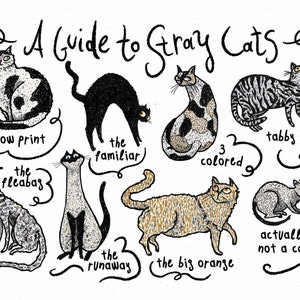 A Guide to Stray Cats
ow print
the
familiar
3
colored
tabby
the
fleabag
the
runaway
the big orange
actuall
not a ca